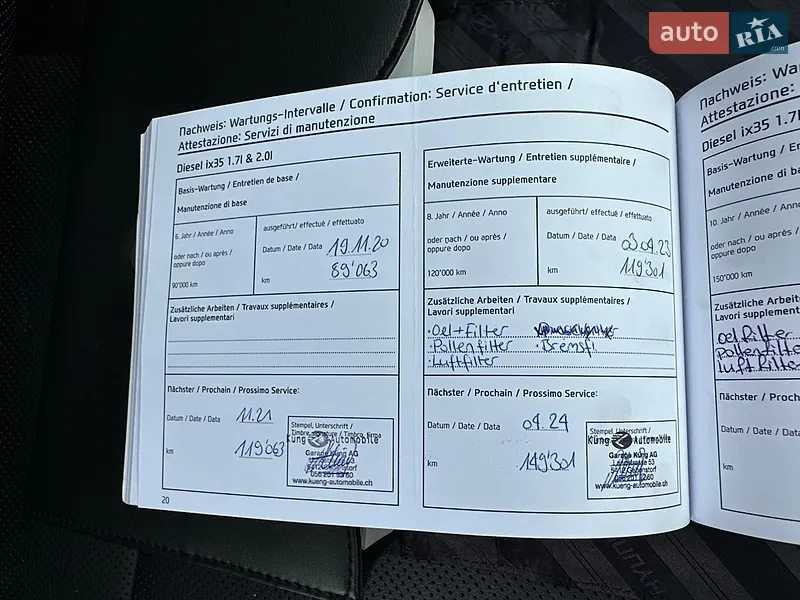 auto RIA .com
Nachweis: Wartungs-Intervalle / Confirmation: Service d'entretien /
Attestazione: Servizi di manutenzione
Diesel ix35 1.7l & 2.0l
Basis-Wartung / Entretien de base /
Manutenzione di base
6. Jahr / Année / Anno
oder nach / ou après /
oppure dopo
90'000 km
ausgeführt/ effectué / effettuato
Datum / Date / Data 19.11.20
km 89'063
Zusätzliche Arbeiten / Travaux supplémentaires /
Lavori supplementari
Nächster / Prochain / Prossimo Service:
Datum / Date / Data 11.21
km 119'063
Stempel, Unterschrift /
Timbre, signature / Timbro, firma
Küng Automobile
Garage Küng AG
www.kueng-automobile.ch
20
Erweiterte-Wartung / Entretien supplémentaire /
Manutenzione supplementare
8. Jahr / Année / Anno
oder nach / ou après /
oppure dopo
120'000 km
ausgeführt/ effectué / effettuato
Datum / Date / Data 03.04.23
km 119'301
Zusätzliche Arbeiten / Travaux supplémentaires /
Lavori supplementari
·Oel+Filter
·Pollenfilter ·Bremsfl
·Luftfilter
Nächster / Prochain / Prossimo Service:
Datum / Date / Data 04.24
km 149'301
Stempel, Unterschrift /
Küng Automobile
Garage Küng AG
www.kueng-automobile.ch
Nachweis: Wa
Attestazione:
Diesel ix35 1.7l
Erweiterte-Wartung / En
Manutenzione di ba
10. Jahr / Année / Anno
oder nach / ou après /
oppure dopo
150'000 km
Zusätzliche Arbeiten
Lavori supplementari
Oel Filter
Pollenfilter
Luftfilter
Nächster / Proch
Datum / Date / Data
km